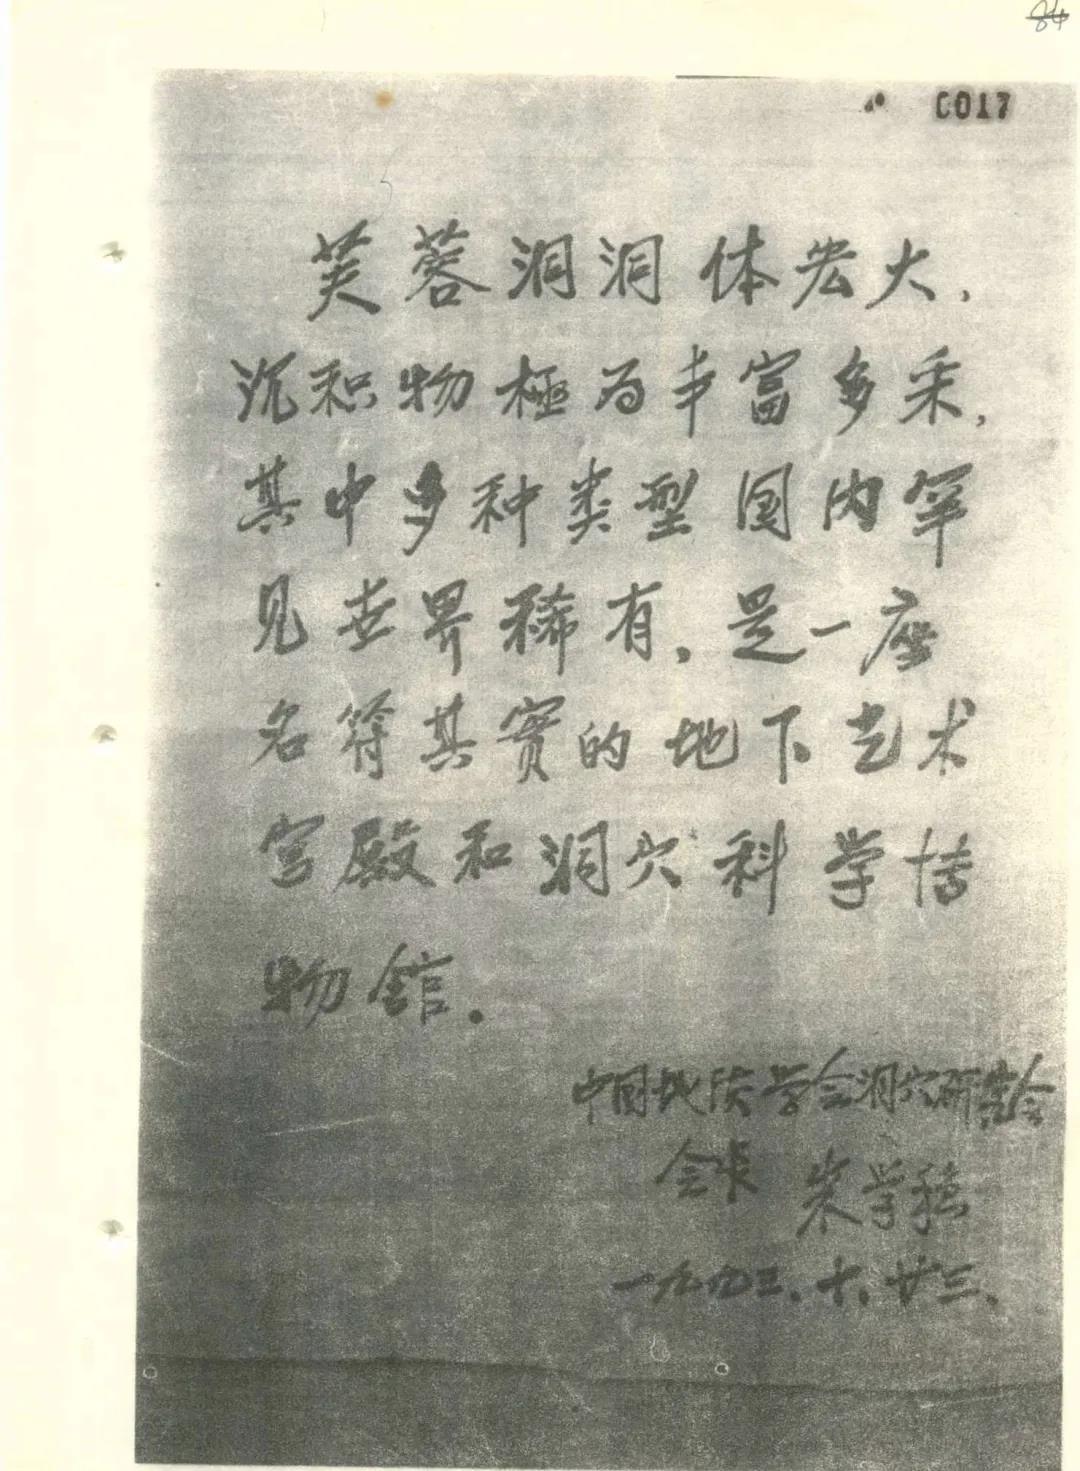 84
0017
芙蓉洞洞体宏大，
沉积物極为丰富多采，
其中多种类型国内罕
见世界稀有，是一座
名符其實的地下艺术
宫殿和洞穴科学博
物舘．
中国地质学会洞穴研究会
会长 朱学稳
一九九三、十、廿三、